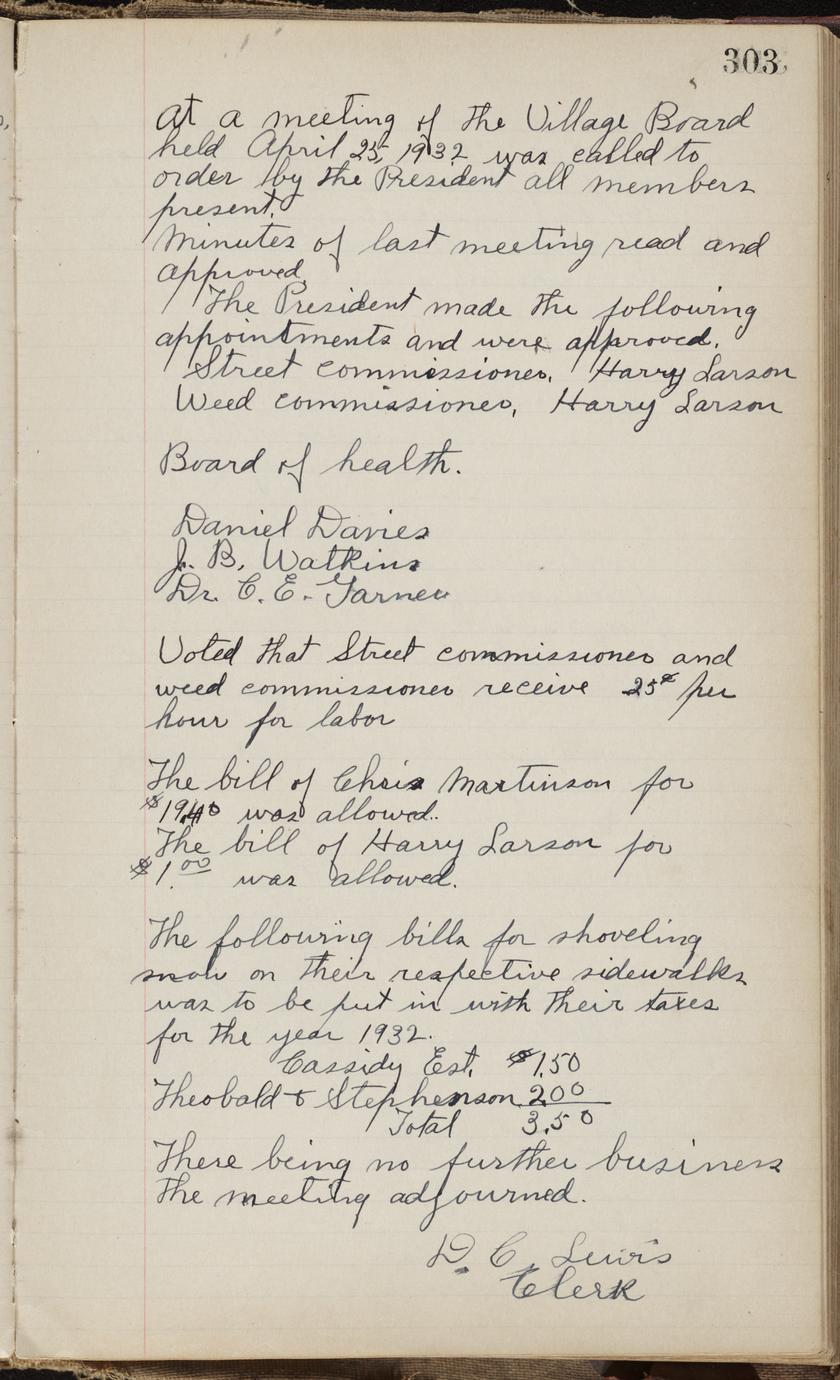 303
At a meeting of the Village Board
held April 25, 1932 was called to
order by the President all members
present.
Minutes of last meeting read and
approved.
The President made the following
appointments and were approved.
Street commissioner, Harry Larson
Weed commissioner, Harry Larson
Board of health.
Daniel Davies
J. B. Watkins
Dr. C. E. Garner
Voted that Street commissioner and
weed commissioner receive 25¢ per
hour for labor
The bill of Chris Martinson for
$19.40 was allowed.
The bill of Harry Larson for
$1.00 was allowed.
The following bills for shoveling
snow on their respective sidewalks
was to be put in with their taxes
for the year 1932.
Cassidy Est. $1.50
Theobald & Stephenson 2.00
Total 3.50
There being no further business
the meeting adjourned.
D. C. Lewis
Clerk